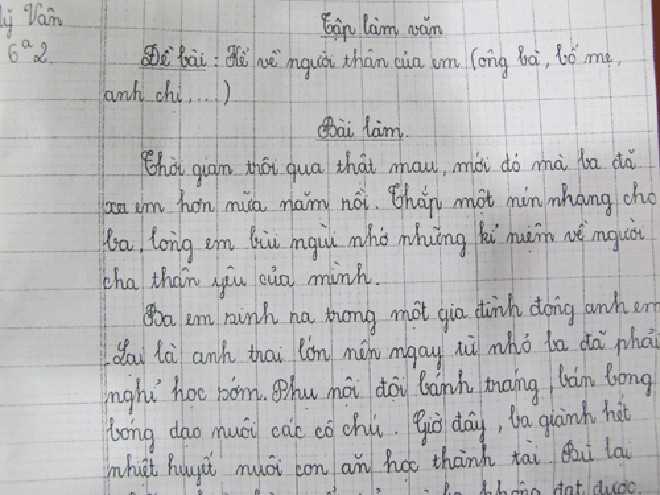 lý Vân
6a2
Tập làm văn
Đề bài: Kể về người thân của em (ông bà, bố mẹ,
anh chị,....)
Bài làm.
Thời gian trôi qua thật mau, mới đó mà ba đã
xa em hơn nửa năm rồi. Thắp một nén nhang cho
ba, lòng em bùi ngùi nhớ những kỉ niệm về người
cha thân yêu của mình.
Ba em sinh ra trong một gia đình đông anh em
Lại là anh trai lớn nên ngay từ nhỏ ba đã phải
nghỉ học sớm. Phụ nội đội bánh tráng, bán bong
bóng dạo nuôi các cô chú. Giờ đây, ba giành hết
nhiệt huyết nuôi con ăn học thành tài. Bù lại
không đạt được